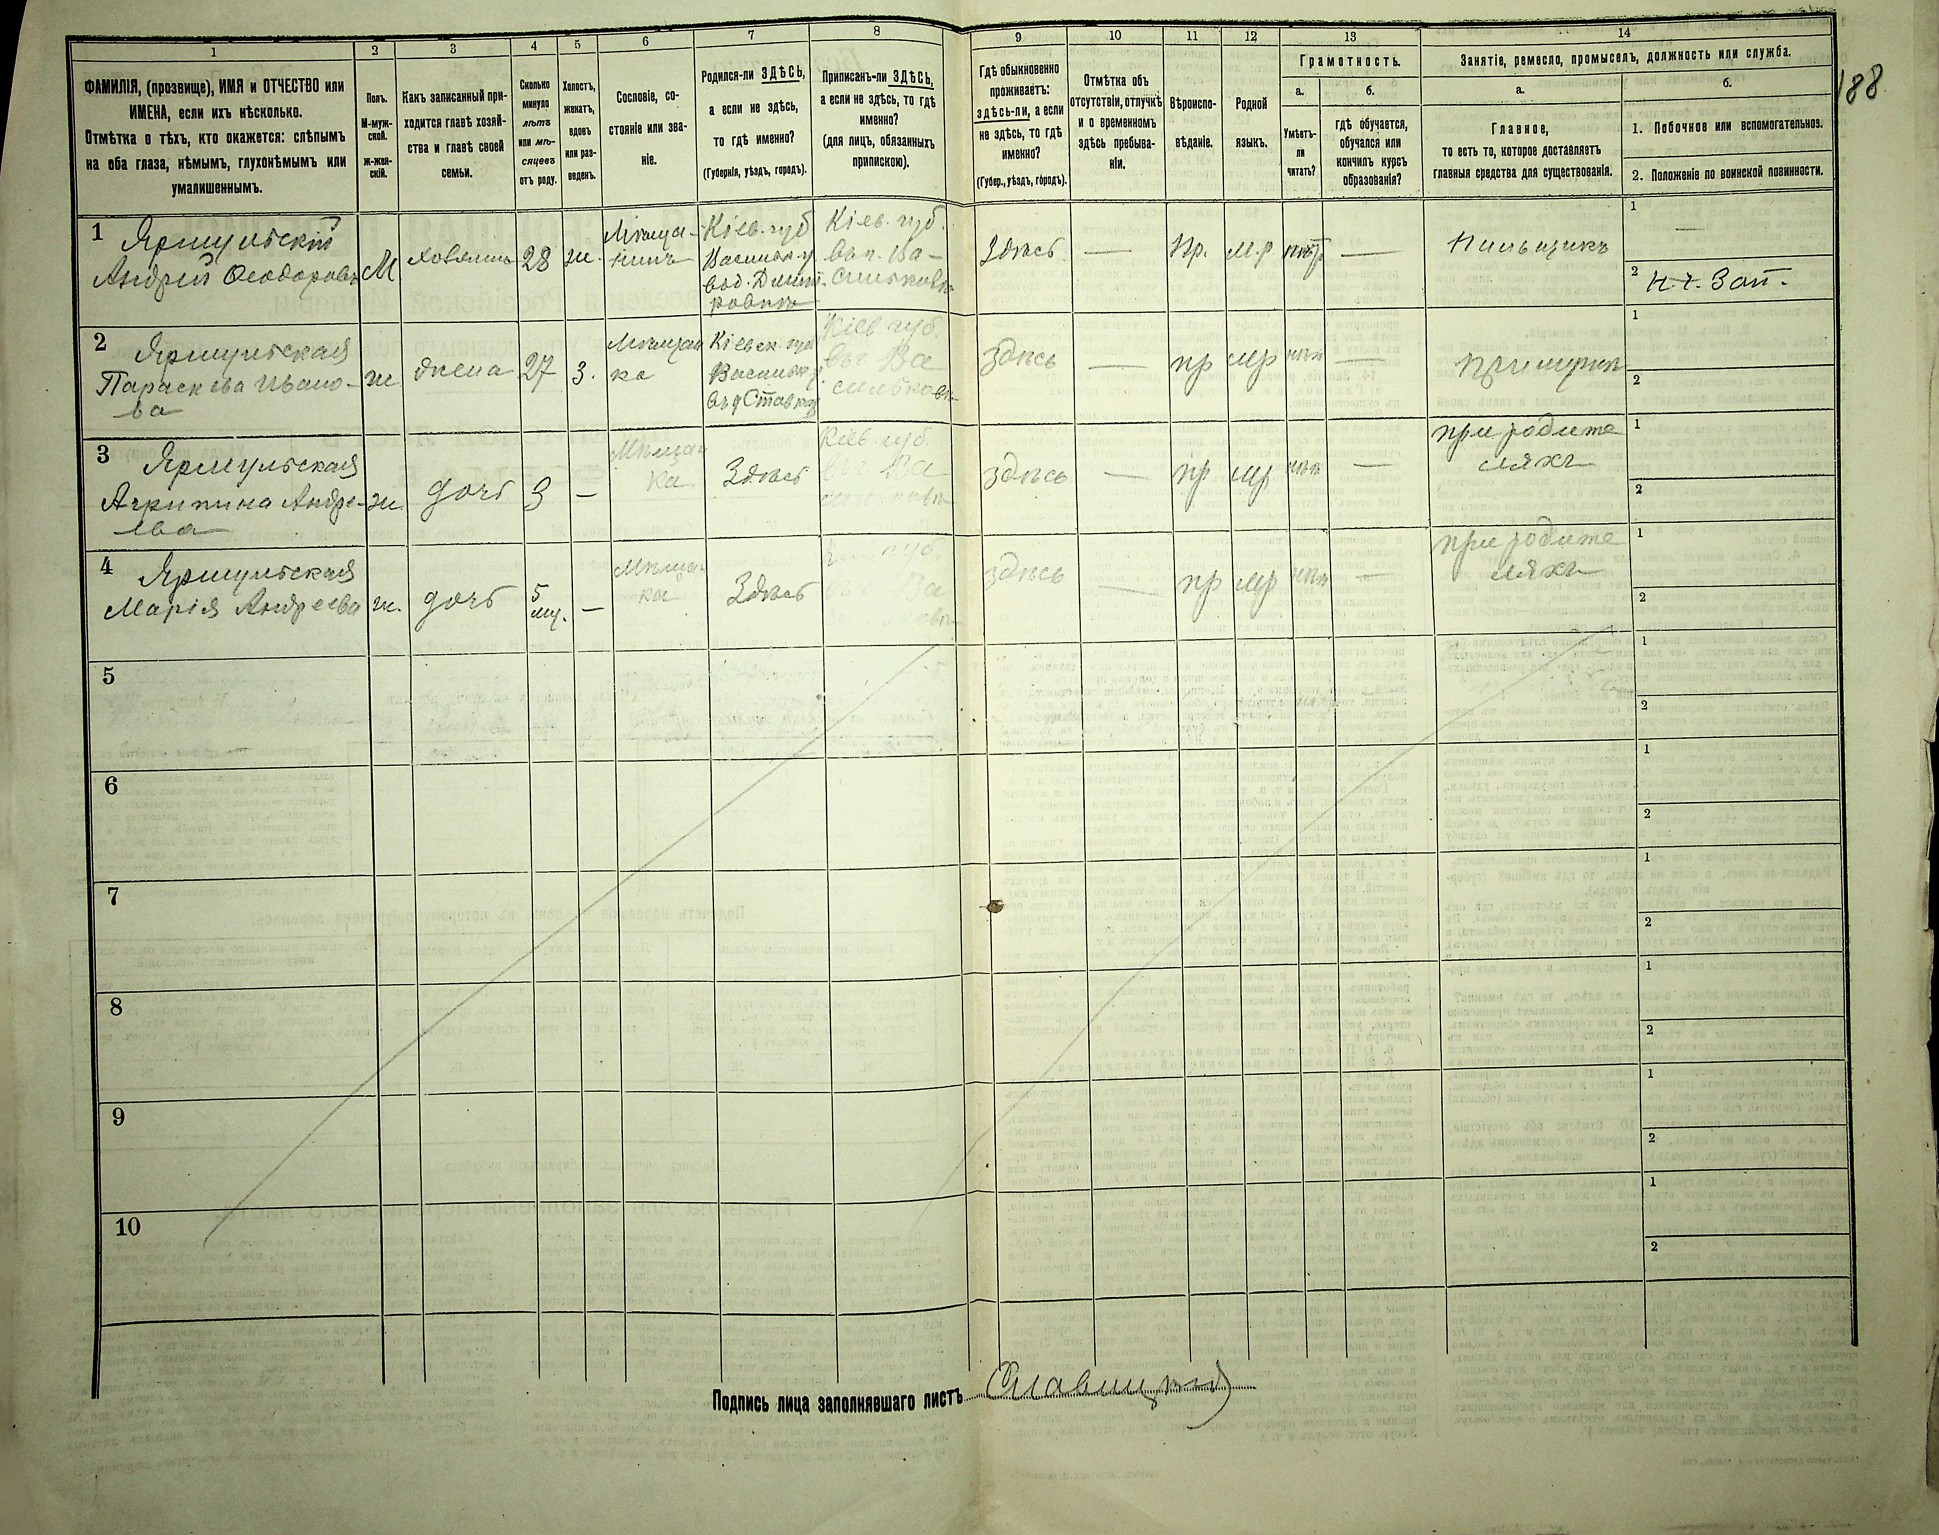 1
2
3
4
5
6
7
8
9
10
11
12
13
14
188
ФАМИЛІЯ, (прозвище), ИМЯ и ОТЧЕСТВО или
ИМЕНА, если ихъ нѣсколько.
Отмѣтка о тѣхъ, кто окажется: слѣпымъ
на оба глаза, нѣмымъ, глухонѣмымъ или
умалишеннымъ.
Полъ.
М-муж-
ской.
ж-жен-
скій.
Какъ записанный при-
ходится главѣ хозяй-
ства и главѣ своей
семьи.
Сколько
минуло
лѣтъ
или мѣ-
сяцевъ
отъ роду.
Холостъ,
женатъ,
вдовъ
или раз-
веденъ.
Сословіе, со-
стояніе или зва-
ніе.
Родился-ли ЗДѢСЬ,
а если не здѣсь,
то гдѣ именно?
(Губернія, уѣздъ, городъ).
Приписанъ-ли ЗДѢСЬ,
а если не здѣсь, то гдѣ
именно?
(для лицъ, обязанныхъ
припискою).
Гдѣ обыкновенно
проживаетъ:
здѣсь-ли, а если
не здѣсь, то гдѣ
именно?
(Губер., уѣздъ, городъ).
Отмѣтка объ
отсутствіи, отлучкѣ
и о временномъ
здѣсь пребыва-
ніи.
Вѣроиспо-
вѣданіе.
Родной
языкъ.
Грамотность.
а.
Умѣетъ-
ли
читать?
б.
гдѣ обучается,
обучался или
кончилъ курсъ
образованія?
Занятіе, ремесло, промыселъ, должность или служба.
а.
Главное,
то есть то, которое доставляетъ
главныя средства для существованія.
б.
1. Побочное или вспомогательное.
2. Положеніе по воинской повинности.
1
Ярмульскій
Андрей Феодоровъ
М
хозяинъ
28
ж.
Мѣща-
нинъ
Кіев. губ
Васильк у
вод. Дмит-
ровкѣ
Кіев. губ.
въ г. Ва-
сильковѣ
Здѣсь
—
Пр.
м.р
нѣтъ
—
Пильщикъ
1
—
2
Н.Ч. Зап.
2
Ярмульская
Параскева Ивано-
ва
ж
жена
27
з.
Мѣщан
ка
Кіевск. губ
Васильк у
въ д Ставка
Кіев губ.
въ г Ва
сильковѣ
здѣсь
—
пр
мр
нѣт
—
при мужѣ
1
2
3
Ярмульская
Агрипина Андре-
ева
ж.
дочь
3
—
Мѣщан
ка
Здѣсь
Кіев губ.
въ г Ва
сильковѣ
здѣсь
—
пр
мр
нѣт
—
при родите
ляхъ
1
2
4
Ярмульская
Марія Андреева
ж.
дочь
5
мц.
—
Мѣща-
ка
Здѣсь
здѣсь
—
пр
мр
нѣт
—
при родите
ляхъ
1
2
5
1
2
6
1
2
7
1
2
8
1
2
9
1
2
10
1
2
Подпись лица заполнявшаго листъ